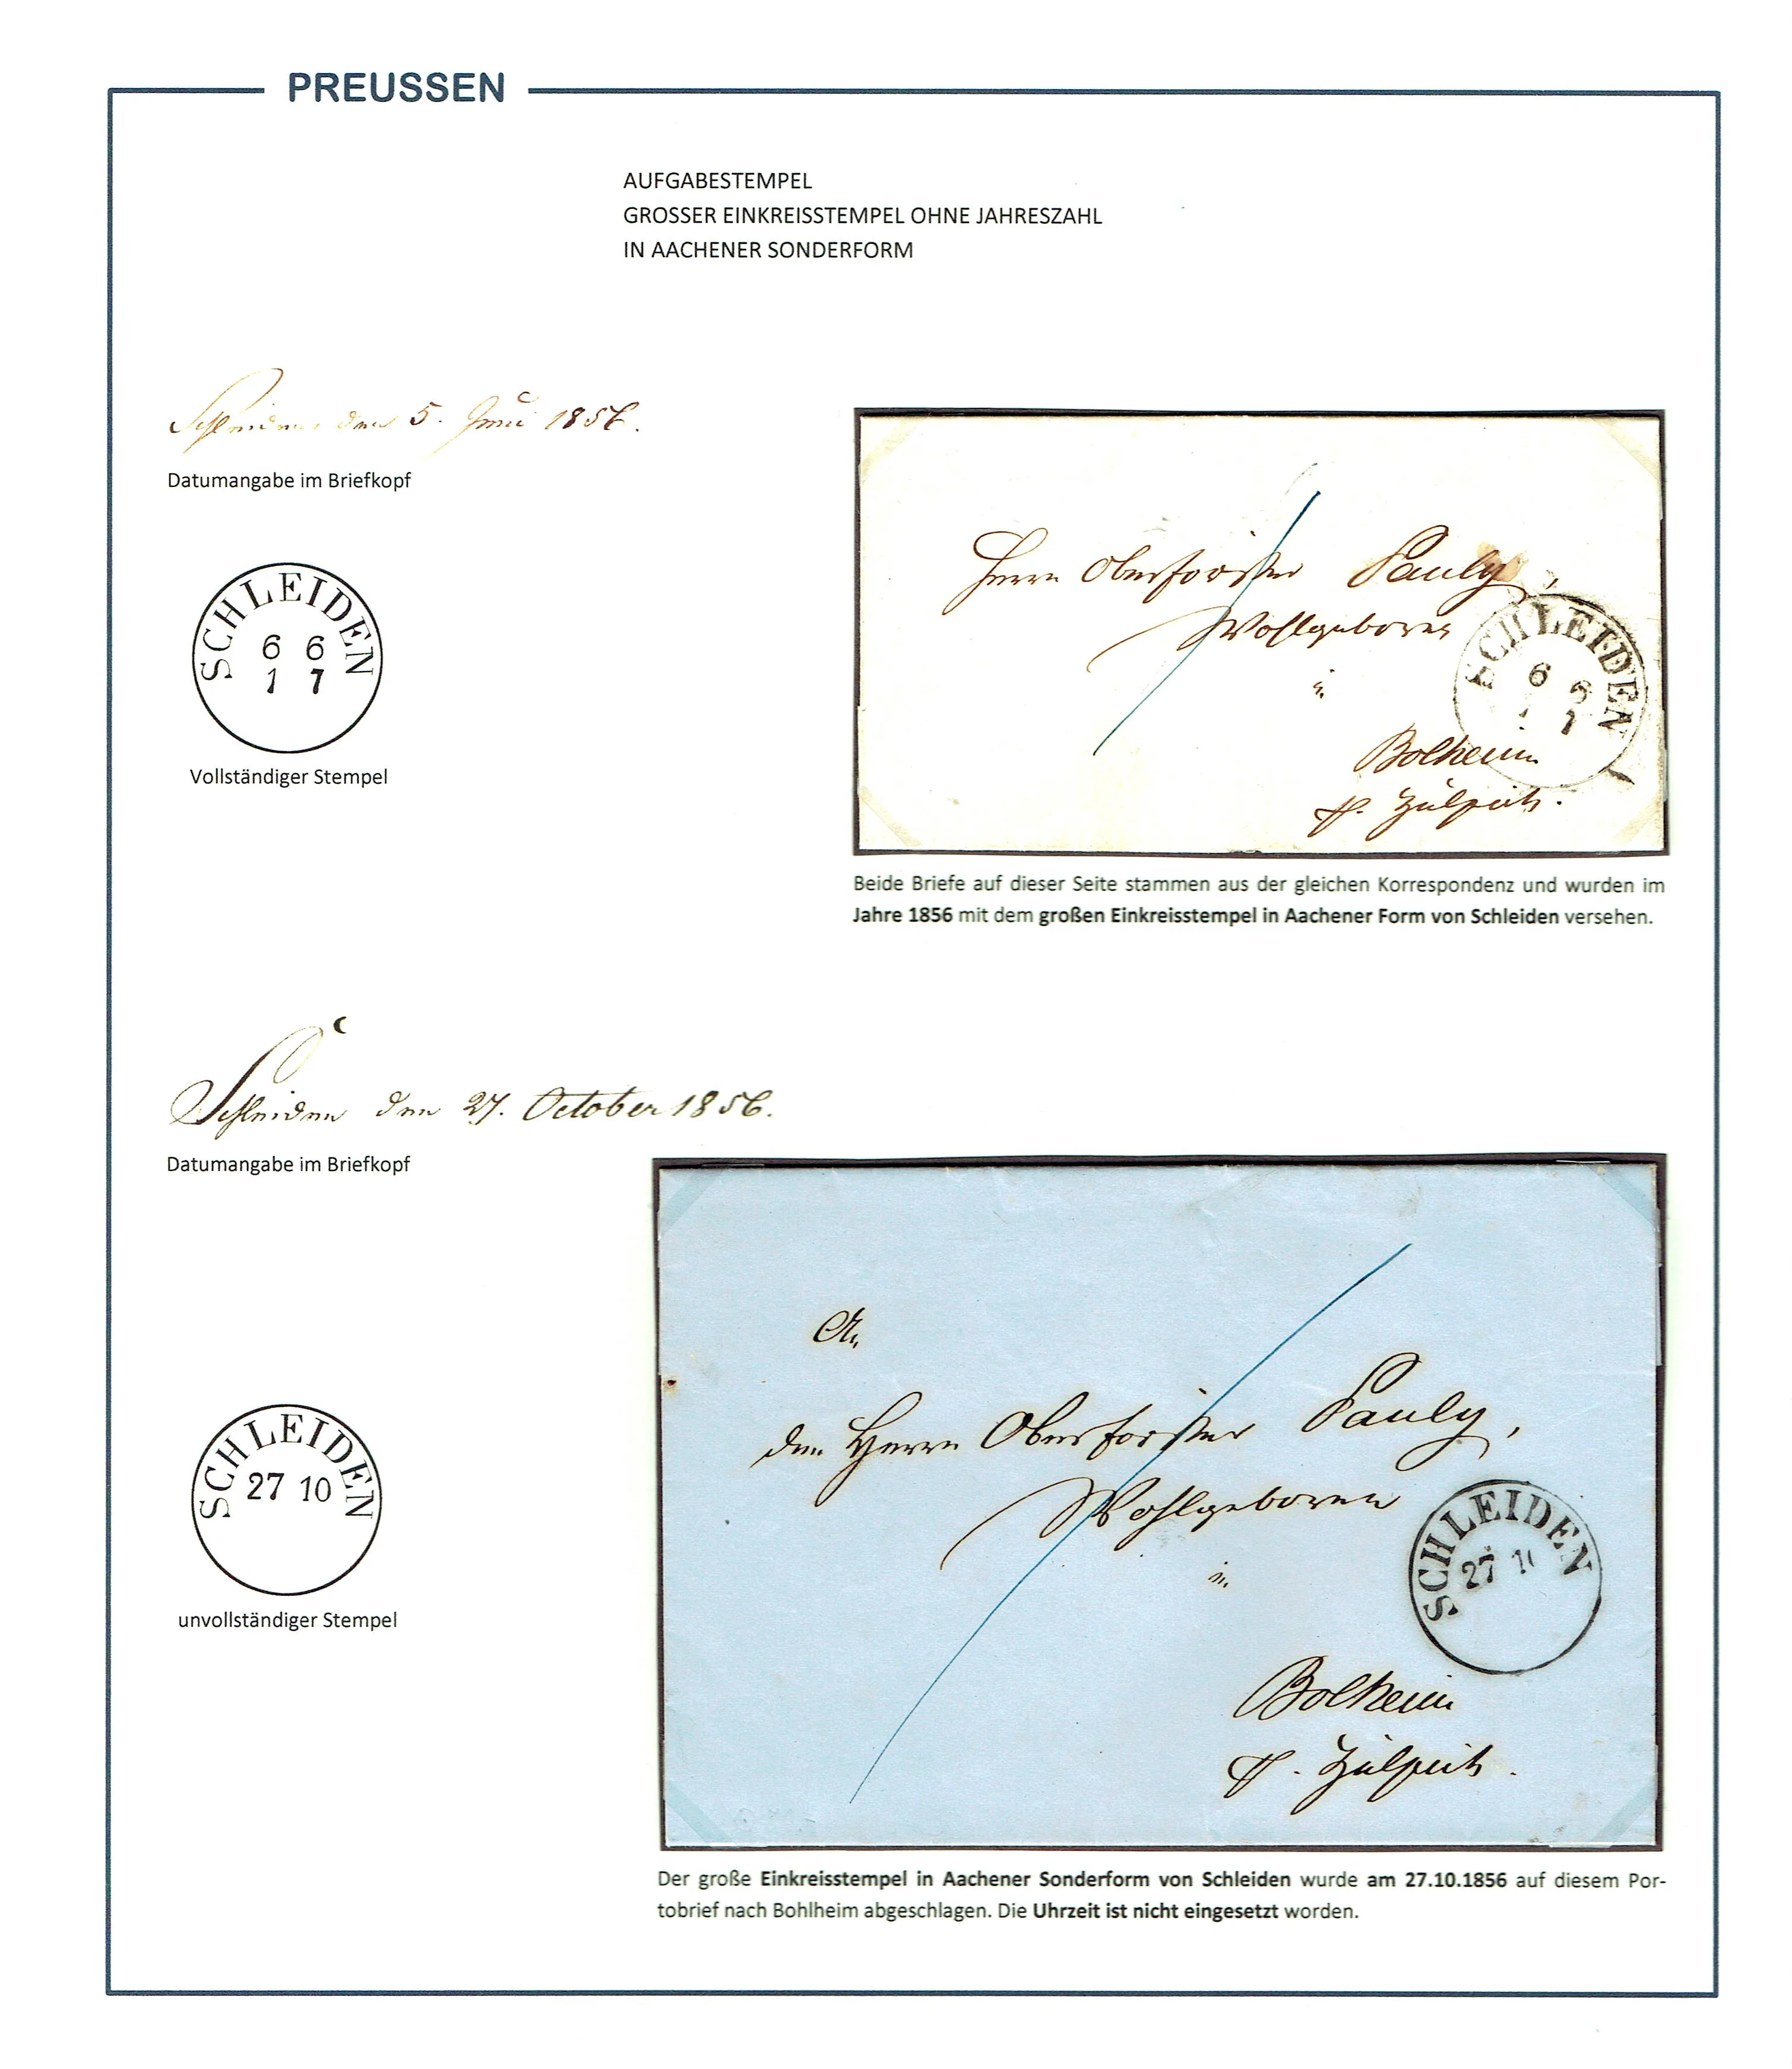 PREUSSEN
AUFGABESTEMPEL
GROSSER EINKREISSTEMPEL OHNE JAHRESZAHL
IN AACHENER SONDERFORM
Schleiden, den 5. Juni 1856.
Datumangabe im Briefkopf
SCHLEIDEN
6 6
1 7
Vollständiger Stempel
Herrn Oberförster Pauly,
Wohlgeboren
SCHLEIDEN
6 6
1
Bolheim
p. Zülpich.
Beide Briefe auf dieser Seite stammen aus der gleichen Korrespondenz und wurden im
Jahre 1856 mit dem großen Einkreisstempel in Aachener Form von Schleiden versehen.
Schleiden den 27. October 1856.
Datumangabe im Briefkopf
SCHLEIDEN
27 10
unvollständiger Stempel
An
den Herrn Oberförster Pauly,
Wohlgeboren
SCHLEIDEN
27 10
in
Bolheim
p. Zülpich.
Der große Einkreisstempel in Aachener Sonderform von Schleiden wurde am 27.10.1856 auf diesem Por-
tobrief nach Bohlheim abgeschlagen. Die Uhrzeit ist nicht eingesetzt worden.